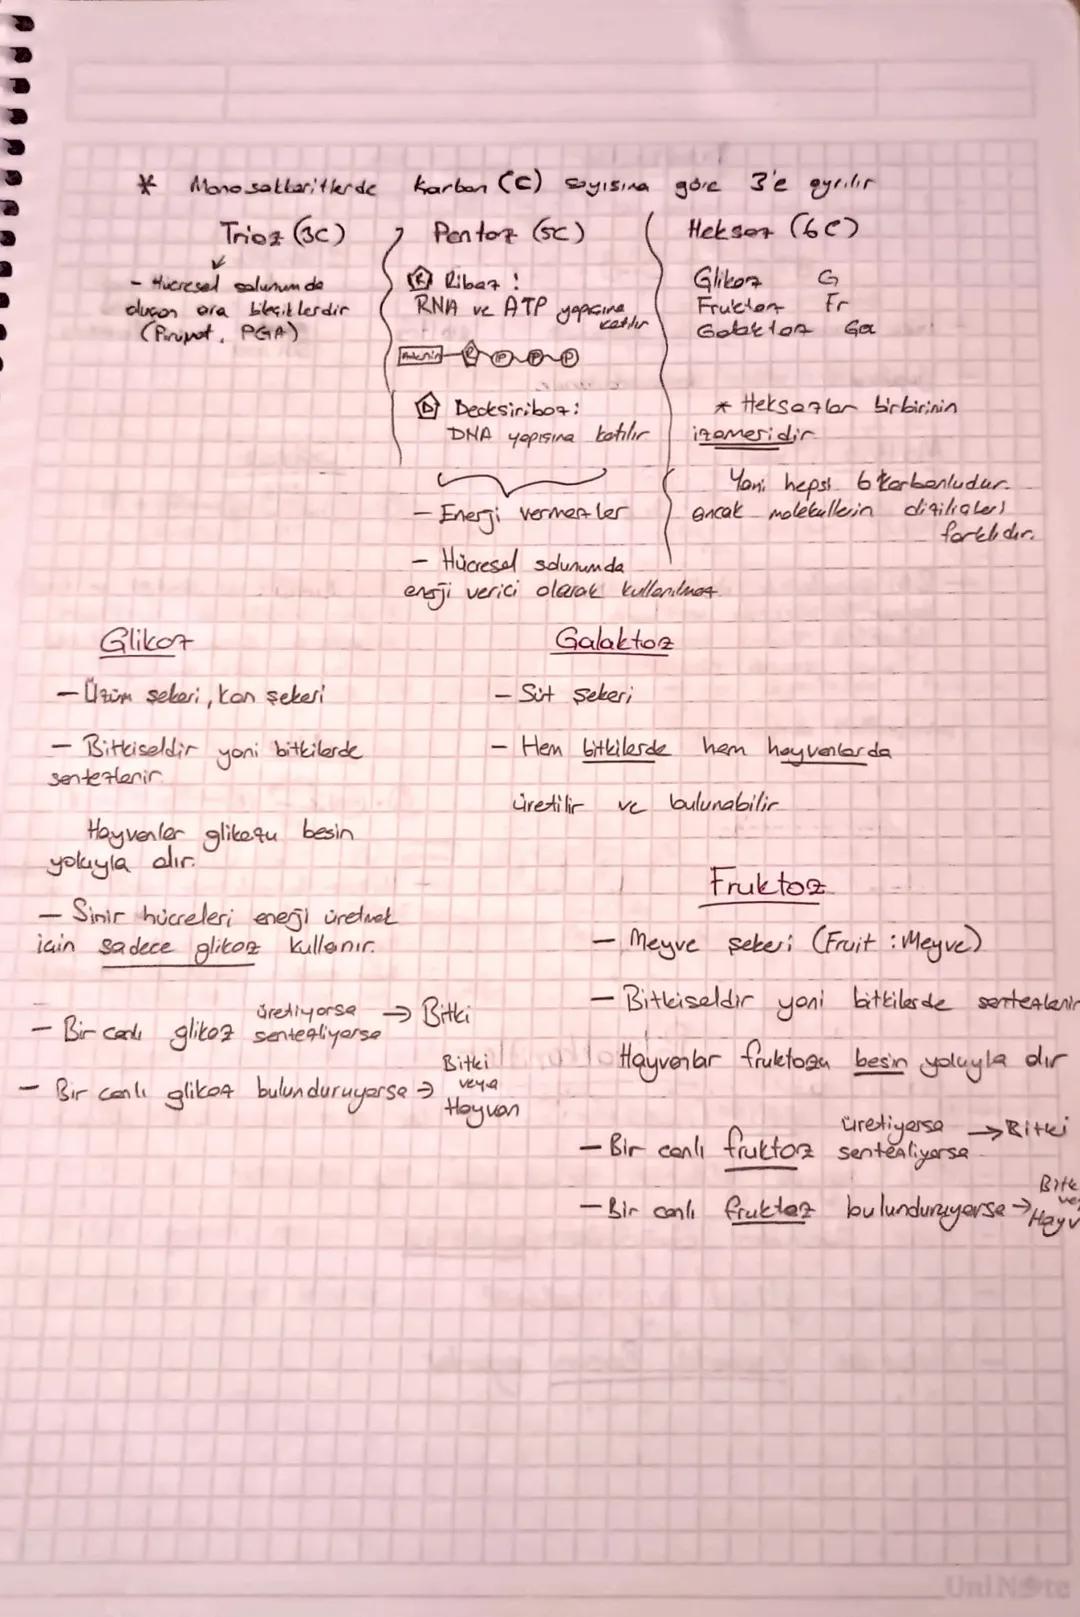 * Monosakkaritlerde karbon (C) sayısına göre 3'e ayrılır
Trioz (3C)
- Hücresel solunumda
oluşan ara bileşiklerdir
(Pirüvat, PGA)
Pentoz (5C)
R Riboz :
RNA ve ATP yapısına
katılır
Adenin R P P P
D Deoksiriboz :
DNA yapısına katılır
- Enerji vermezler
- Hücresel solunumda
enerji verici olarak kullanılmaz
Heksoz (6C)
Glikoz G
Fruktoz Fr
Galaktoz Ga
* Heksozlar birbirinin
izomeridir
Yani hepsi 6 karbonludur
ancak moleküllerin dizilişleri
farklıdır.
Glikoz
- Üzüm şekeri, kan şekeri
- Bitkiseldir yani bitkilerde
sentezlenir
Hayvanlar glikozu besin
yoluyla alır.
- Sinir hücreleri enerji üretmek
için sadece glikoz kullanır.
- Bir canlı glikoz üretiyorsa
sentezliyorsa → Bitki
- Bir canlı glikoz bulunduruyorsa → Bitki
veya
Hayvan
Galaktoz
- Süt şekeri
- Hem bitkilerde hem hayvanlarda
üretilir ve bulunabilir
Fruktoz
- Meyve şekeri (Fruit : Meyve)
- Bitkiseldir yani bitkilerde sentezlenir
Hayvanlar fruktozu besin yoluyla alır
- Bir canlı fruktoz üretiyorsa
sentezliyorsa → Bitki
- Bir canlı fruktoz bulunduruyorsa → Bitk
ve
Hayv
UniNote